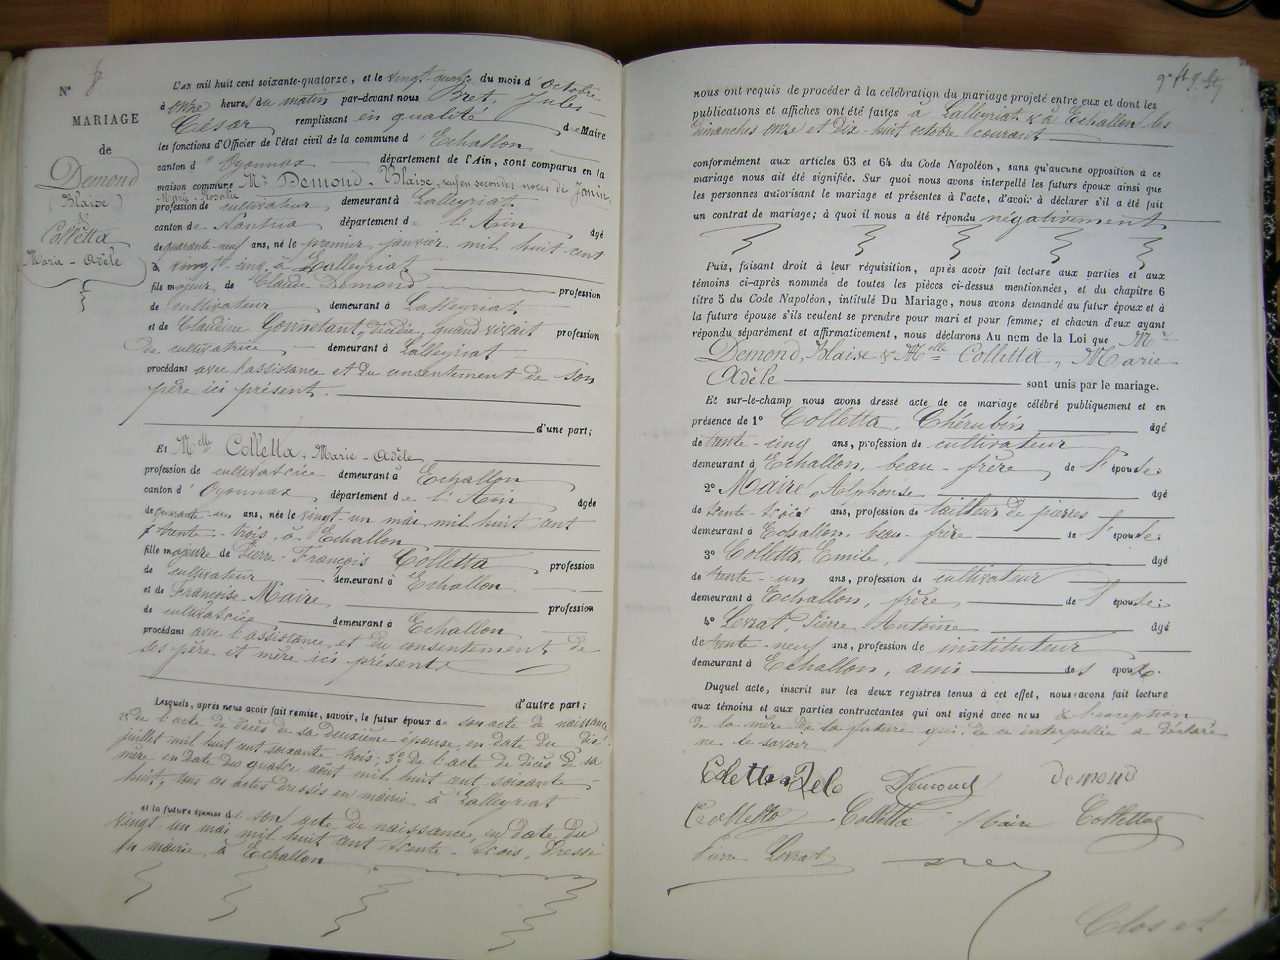 N° 8
MARIAGE
de
Demond
(Blaise)
&
Colletta
Marie-Adèle
L'an mil huit cent soixante-quatorze, et le vingt-quatre du mois d'octobre
à onze heures du matin par-devant nous Bret, Jules
César, remplissant en qualité de Maire
les fonctions d'Officier de l'état civil de la commune d'Echallon
canton d'Oyonnax département de l'Ain, sont comparus en la
maison commune Mr Demond, Blaise, veuf en secondes noces de Janin,
Marie-Rosalie
profession de cultivateur, demeurant à Lalleyriat
canton de Nantua département de l'Ain âgé
de quarante-neuf ans, né le premier janvier mil huit cent
vingt-cinq, à Lalleyriat
fils majeur de Claude Demond profession
de cultivateur demeurant à Lalleyriat
et de Claudine Gonnetant, décédée, quand vivait profession
de cultivatrice demeurant à Lalleyriat
procédant avec l'assistance et du consentement de son
père ici présent.
d'une part;
Et Melle Colletta, Marie-Adèle
profession de cultivatrice demeurant à Echallon
canton d'Oyonnax, département de l'Ain âgée
de quarante-un ans, née le vingt-un mai mil huit cent
trente-trois, à Echallon
fille majeure de Pierre-François Colletta profession
de cultivateur demeurant à Echallon
et de Françoise Maire, profession
de cultivatrice demeurant à Echallon
procédant avec l'assistance et du consentement de
ses père et mère ici présents
d'autre part;
Lesquels, après nous avoir fait remise, savoir, le futur époux de son acte de naissance
2° de l'acte de décès de sa deuxième épouse, en date du dix
juillet mil huit cent soixante trois; 3° de l'acte de décès de sa
mère en date du quatre août mil huit cent soixante-
huit, tous ces actes dressés en mairie à Lalleyriat
et la future épouse de son acte de naissance, en date du
vingt un mai mil huit cent trente-trois, dressé
en mairie, à Echallon
nous ont requis de procéder à la célébration du mariage projeté entre eux et dont les
publications et affiches ont été faites à Lalleyriat & à Echallon les
dimanches onze et dix-huit octobre courant
conformément aux articles 63 et 64 du Code Napoléon, sans qu'aucune opposition à ce
mariage nous ait été signifiée. Sur quoi nous avons interpellé les futurs époux ainsi que
les personnes autorisant le mariage et présentes à l'acte, d'avoir à déclarer s'il a été fait
un contrat de mariage; à quoi il nous a été répondu négativement
Puis, faisant droit à leur réquisition, après avoir fait lecture aux parties et aux
témoins ci-après nommés de toutes les pièces ci-dessus mentionnées, et du chapitre 6
titre 5 du Code Napoléon, intitulé Du Mariage, nous avons demandé au futur époux et à
la future épouse s'ils veulent se prendre pour mari et pour femme; et chacun d'eux ayant
répondu séparément et affirmativement, nous déclarons Au nom de la Loi que Mr
Demond, Blaise & Melle Colletta, Marie
Adèle sont unis par le mariage.
Et sur-le-champ nous avons dressé acte de ce mariage célébré publiquement et en
présence de 1° Colletta, Chérubin, âgé
de trente-cinq ans, profession de cultivateur
demeurant à Echallon, beau-frère de l'épouse.
2° Maire, Alphonse âgé
de trente-trois ans, profession de tailleur de pierres
demeurant à Echallon, beau-frère de l'épouse
3° Colletta, Emile, âgé
de trente-un ans, profession de cultivateur
demeurant à Echallon, frère de l'épouse;
4° Levrat, Pierre Antoine âgé
de trente-neuf ans, profession de instituteur
demeurant à Echallon, ami des époux.
Duquel acte, inscrit sur les deux registres tenus à cet effet, nous avons fait lecture
aux témoins et aux parties contractantes qui ont signé avec nous à l'exception
de la mère de la future qui de ce interpellée a déclaré
ne le savoir
Coletta Adele Demond demond
Colletta Colletta Maire Colletta
Pierre Levrat Bret
Clos et